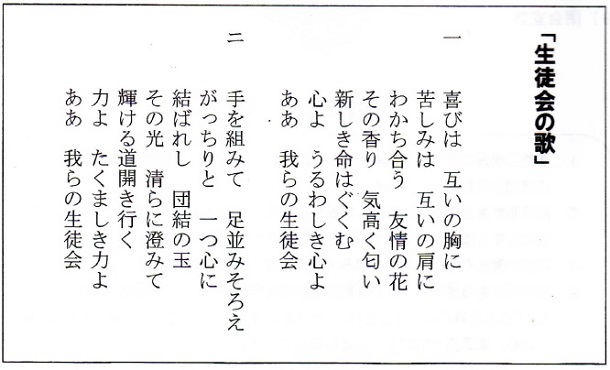 「生徒会の歌」
一
喜びは　互いの胸に
苦しみは　互いの肩に
わかち合う　友情の花
その香り　気高く匂い
新しき命はぐくむ
心よ　うるわしき心よ
ああ　我らの生徒会
二
手を組みて　足並みそろえ
がっちりと　一つ心に
結ばれし　団結の玉
その光　清らに澄みて
輝ける道開き行く
力よ　たくましき力よ
ああ　我らの生徒会